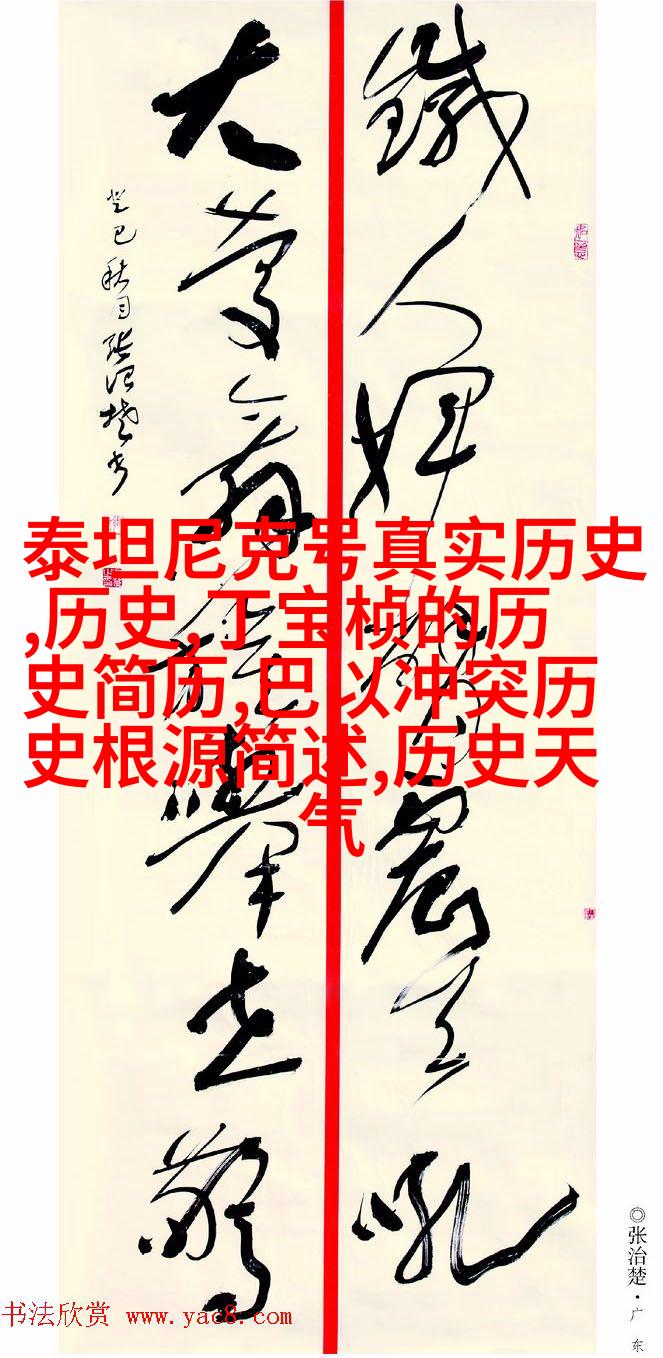 鐵人揮震天吼
大慶舉世驚
癸巳秋月張治楚書
泰坦尼克号真实历史
,历史,丁宝桢的历
史简历,巴以冲突历
史根源简述,历史天
气
◎张治楚·广东
书法欣赏 www.yac8.com